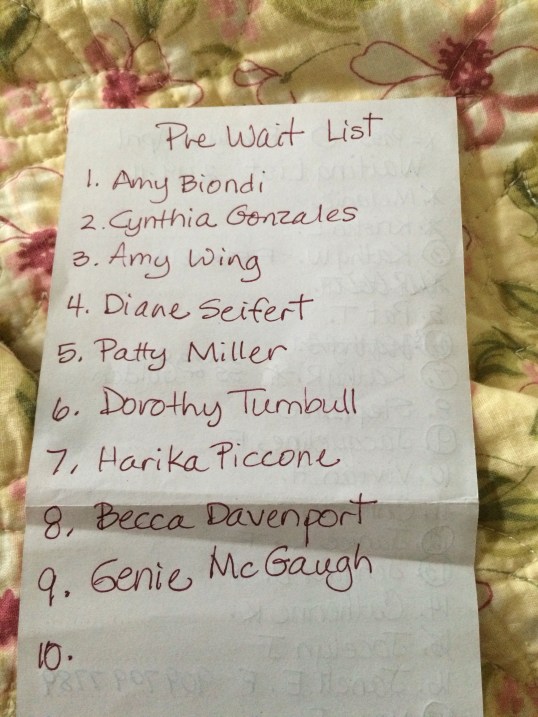 Pre Wait List
1. Amy Biondi
2. Cynthia Gonzales
3. Amy Wing
4. Diane Seifert
5. Patty Miller
6. Dorothy Turnbull
7, Harika Piccone
8, Becca Davenport
9. Genie McGaugh
10.